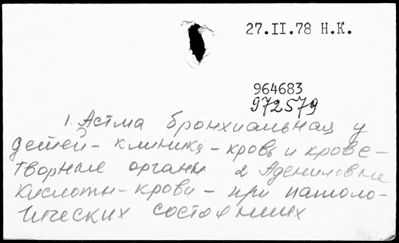 27.II.78 Н.К.
964683
972579
1. Астма бронхиальная у
детей - клиника - кровь и крове-
творные органы 2 Адениловые
кислоты - крови - при патоло-
гических состояниях